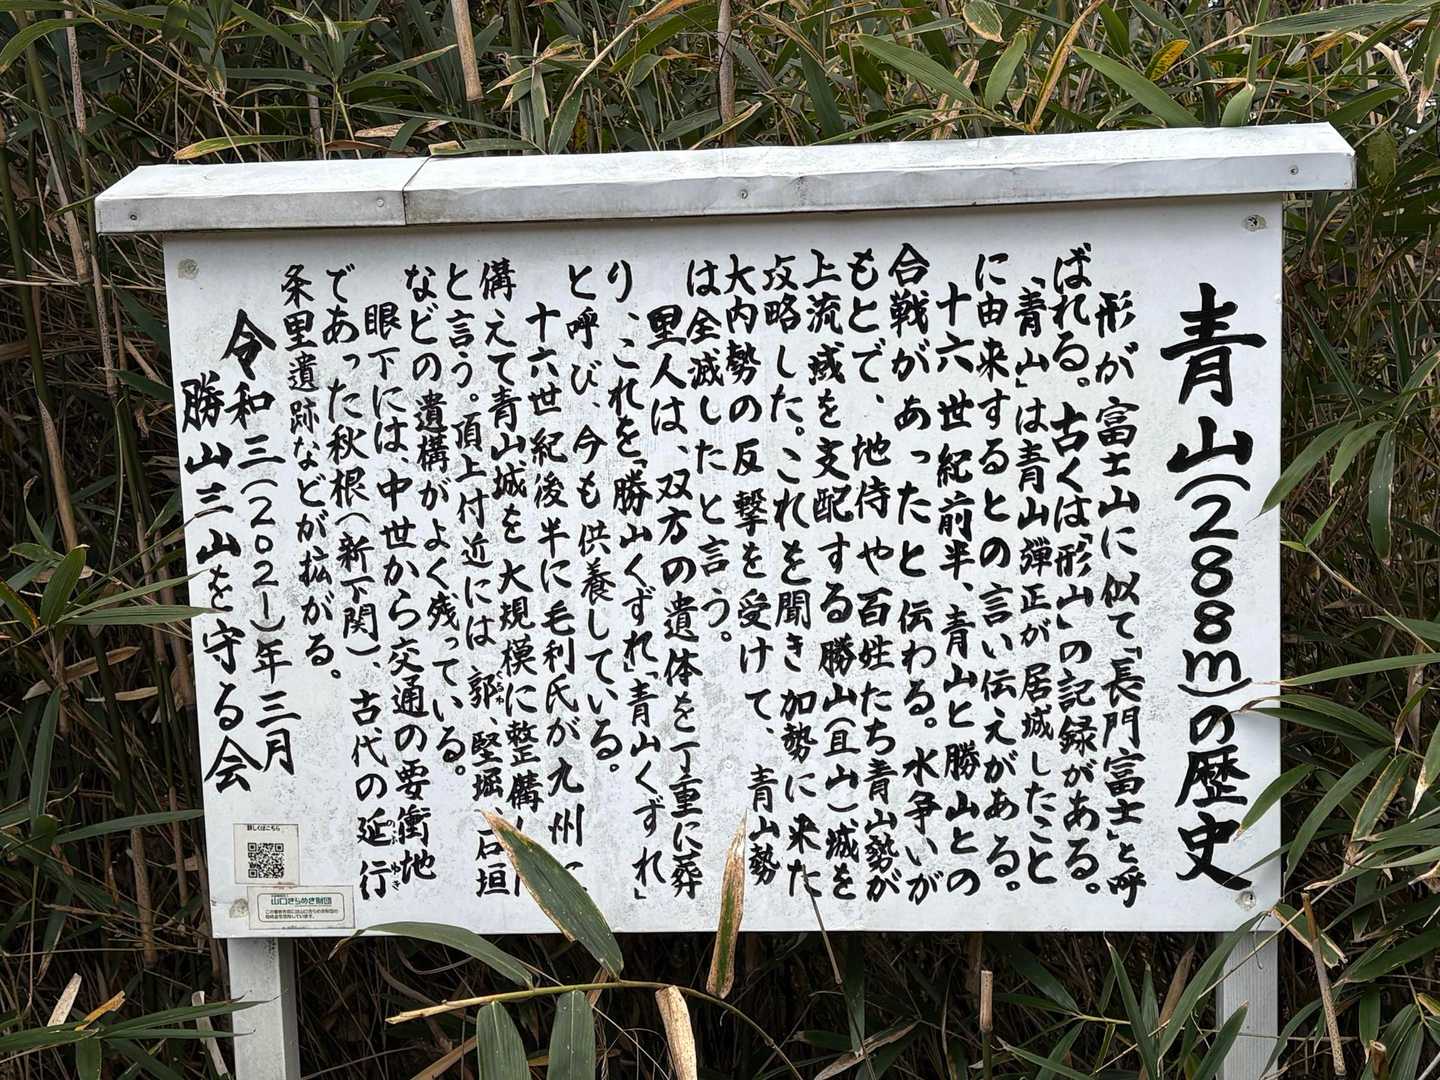 青山(288m)の歴史
形が富士山に似て「長門富士」と呼
ばれる。古くは「形山」の記録がある。
「青山」は青山弾正が居城したこと
に由来するとの言い伝えがある。
十六世紀前半、青山と勝山との
合戦があったと伝わる。水争いが
もとで、地侍や百姓たち青山勢が
上流域を支配する勝山(且山)城を
攻略した。これを聞き加勢に来た
大内勢の反撃を受けて、青山勢
は全滅したと言う。
里人は、双方の遺体を丁重に葬
り、これを「勝山くずれ」「青山くずれ」
と呼び、今も供養している。
十六世紀後半に毛利氏が九州に
備えて青山城を大規模に整備し
と言う。頂上付近には郭、堅堀、石垣
くるわ
などの遺構がよく残っている。
眼下には中世から交通の要衝地
であった秋根(新下関)、古代の延行
のぶゆき
条里遺跡などが拡がる。
令和三(2021)年三月
勝山三山を守る会
詳しくはこちら
山口きらめき財団